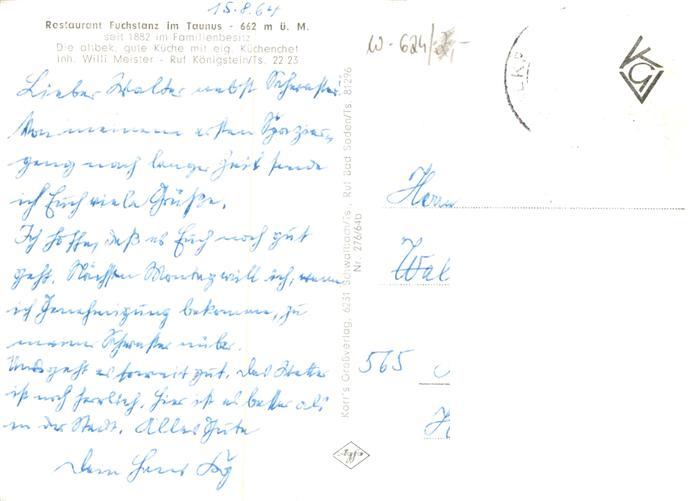 15.8.64
Restaurant Fuchstanz im Taunus - 662 m ü. M.
seit 1882 im Familienbesitz
Die altbek. gute Küche mit eig. Küchenchef
Inh. Willi Meister - Ruf Königstein/Ts. 22 23
Lieber Walter nebst Schwester
Von meinem ersten Spazier-
gang nach langer Zeit sende
ich Euch viele Grüße.
Ich hoffe, daß es Euch noch gut
geht. Nächsten Montag will ich, wenn
ich Genehmigung bekomme, zu
meiner Schwester rüber.
Uns geht es soweit gut. Das Wetter
ist noch herrlich. Hier ist es besser als
in der Stadt. Alles Gute
Dein Hans
Korr's Großverlag, 6231 Schwalbach/Ts., Ruf Bad Soden/Ts. 81296
Nr. 276/64b
W-624/
Herrn
Wal
565